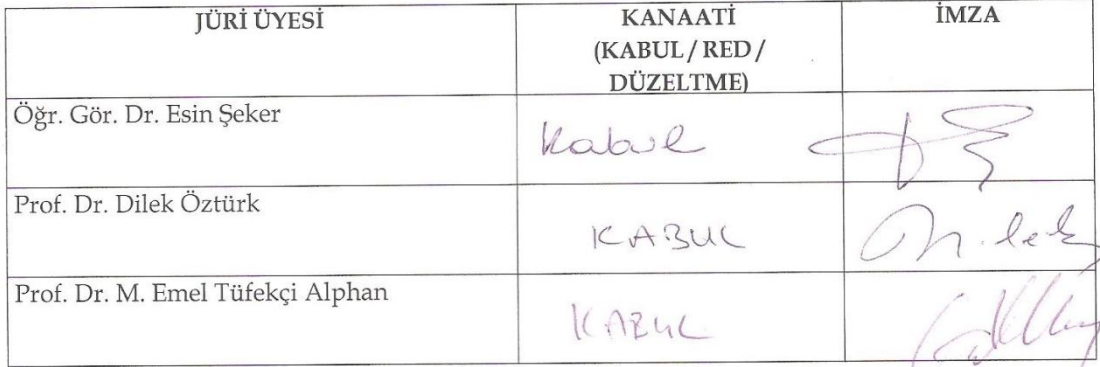 JÜRİ ÜYESİ
KANAATİ
(KABUL / RED /
DÜZELTME)
İMZA
Öğr. Gör. Dr. Esin Şeker
Kabul
Prof. Dr. Dilek Öztürk
KABUL
Prof. Dr. M. Emel Tüfekçi Alphan
KABUL